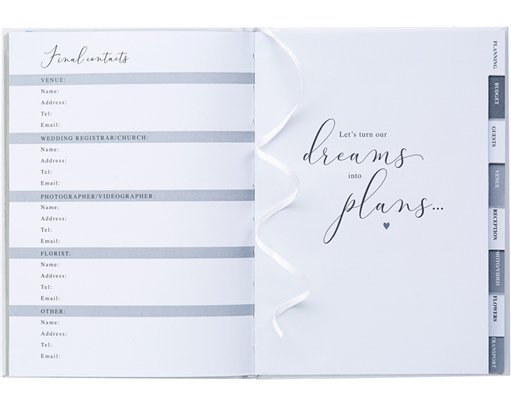 Final contacts
VENUE:
Name:
Address:
Tel:
Email:
WEDDING REGISTRAR/CHURCH:
Name:
Address:
Tel:
Email:
PHOTOGRAPHER/VIDEOGRAPHER:
Name:
Address:
Tel:
Email:
FLORIST:
Name:
Address:
Tel:
Email:
OTHER:
Name:
Address:
Tel:
Email:
Let's turn our
dreams
into
plans...
PLANNING
BUDGET
GUESTS
VENUE
RECEPTION
PHOTO/VIDEO
FLOWERS
TRANSPORT